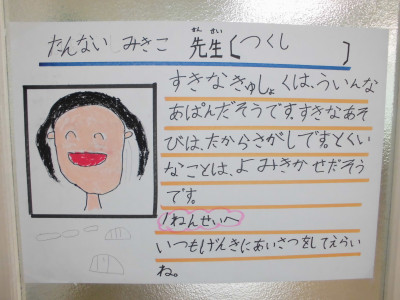 せん せい
たんない みきこ 先生〔つくし 〕
すきなきゅしょくは、ういんな
あぱんだそうです。すきなあそ
びは、たからさがしです。とくい
なことは、よみきかせだそう
です。
1ねんせいへ
いつもげんきにあいさつをしてえらい
ね。